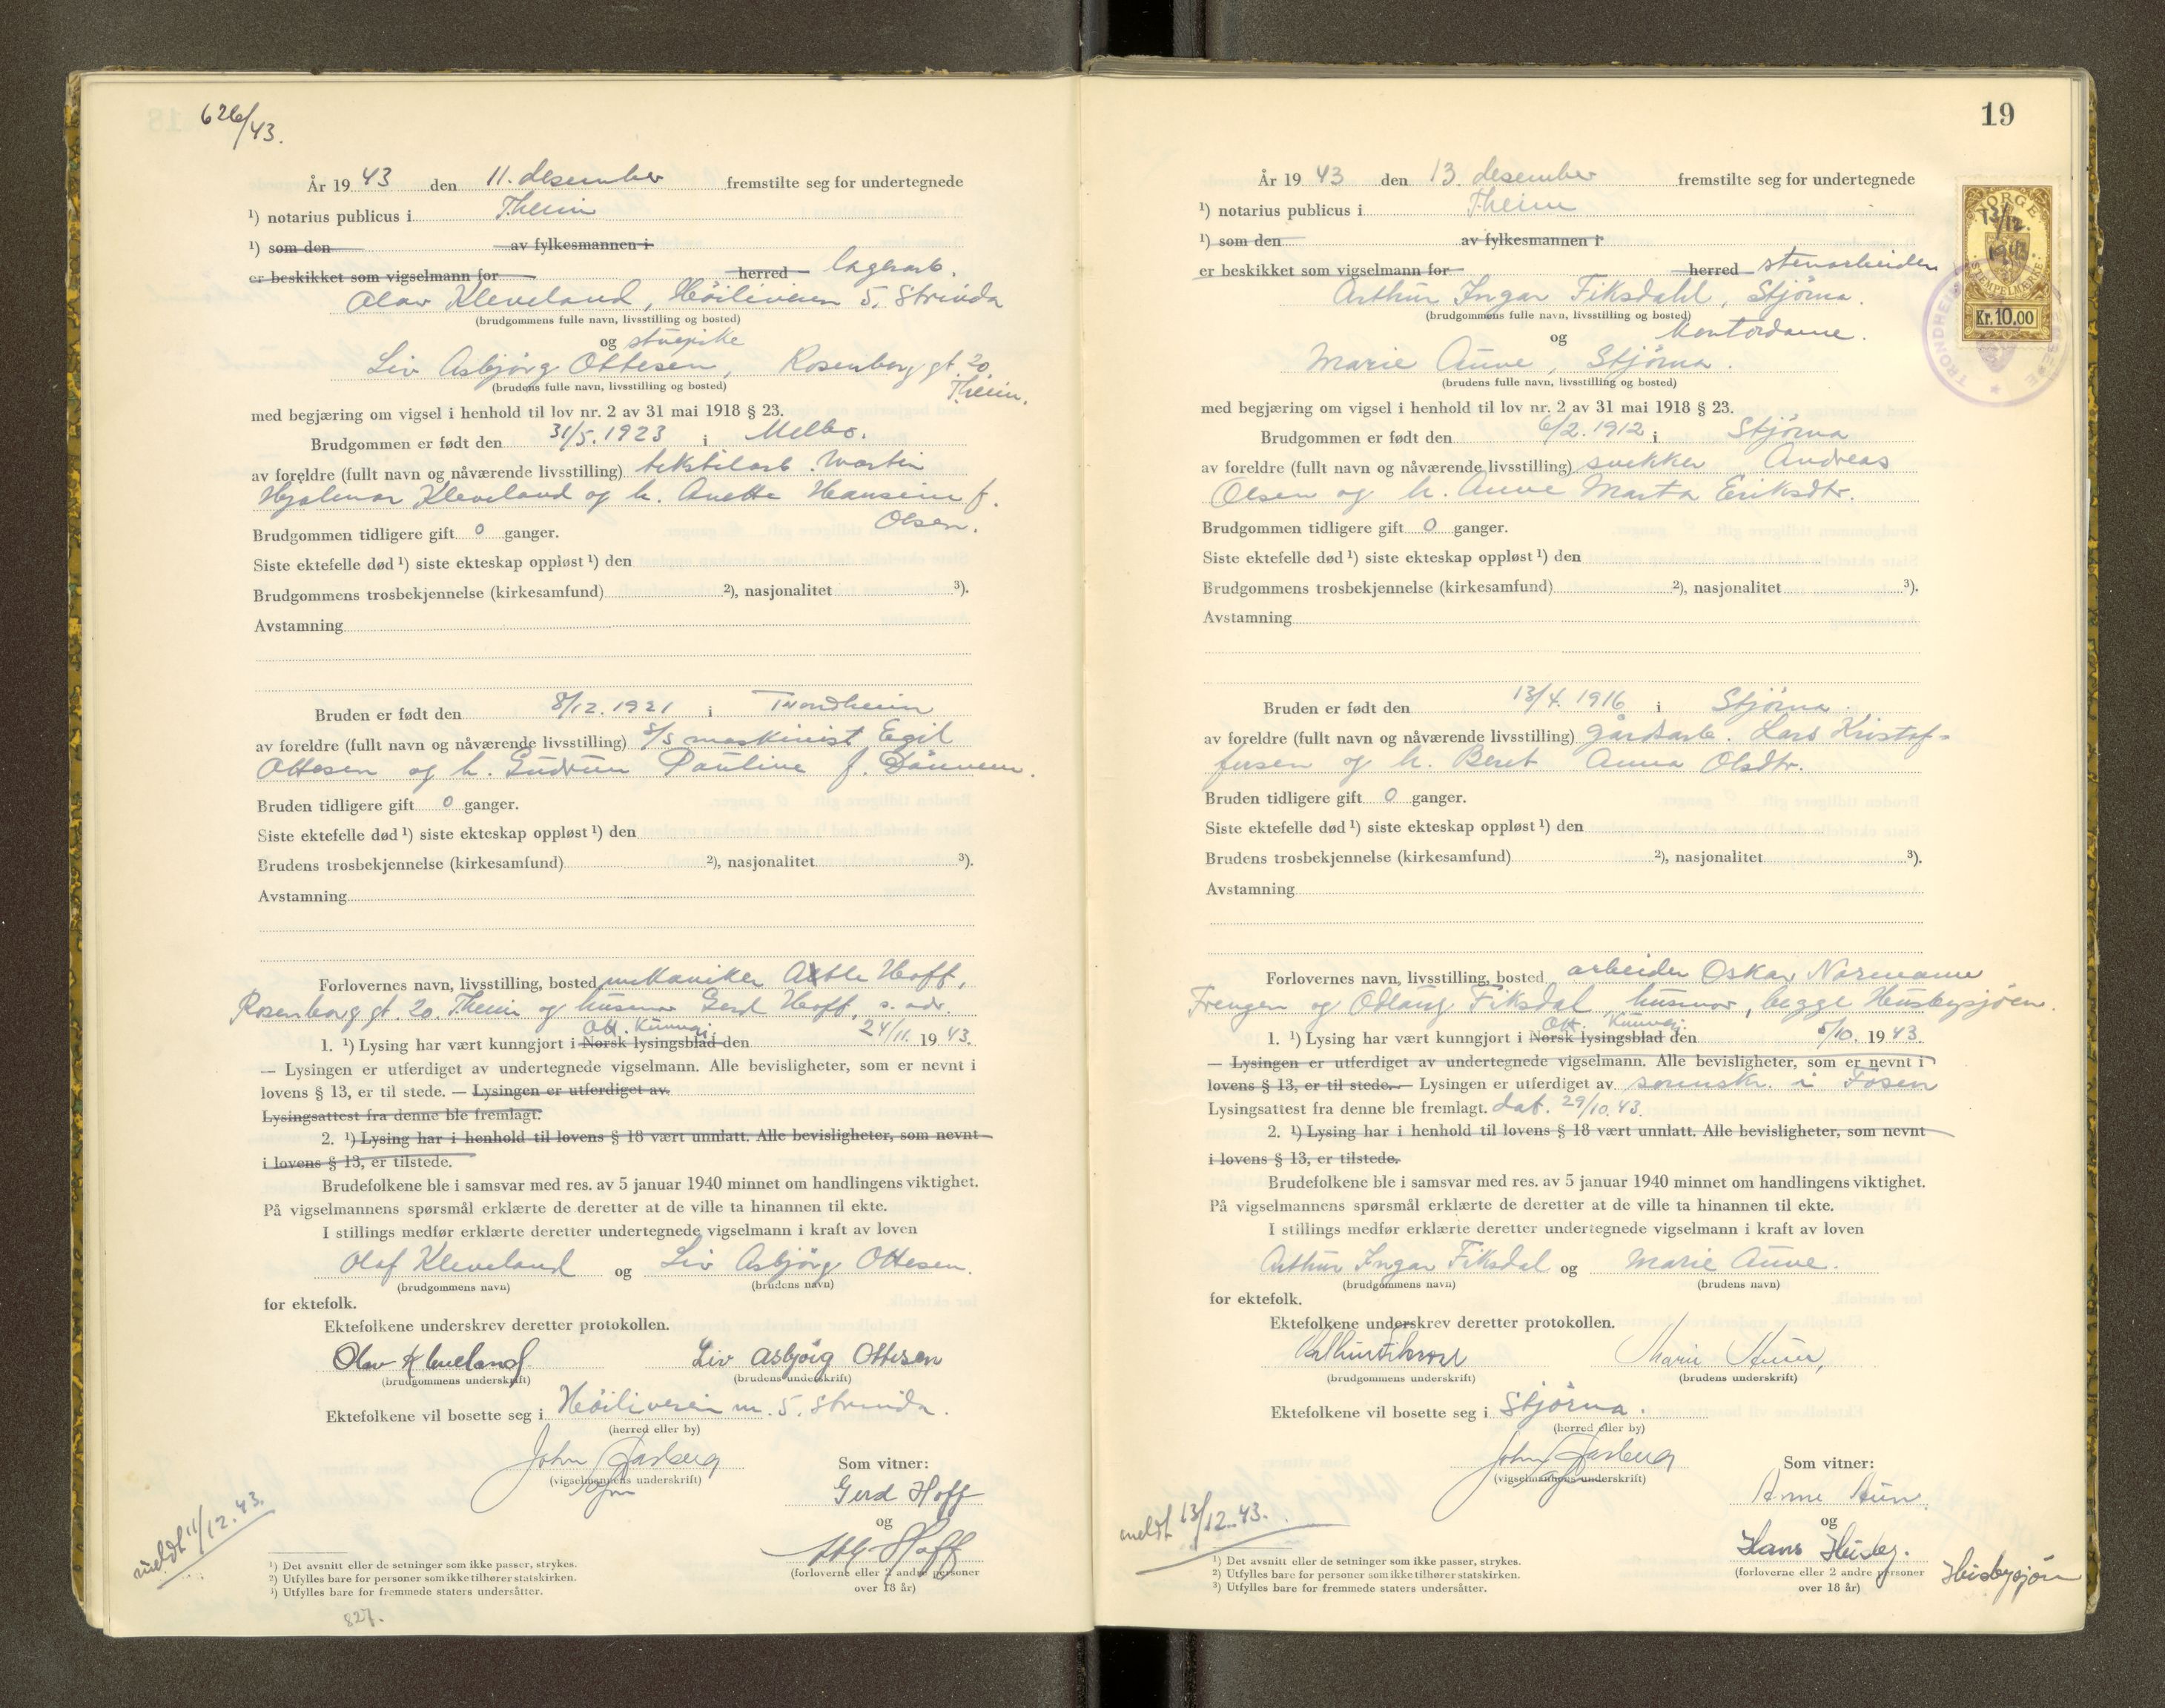 626/43.
År 19 43 den 11. desember fremstilte seg for undertegnede
¹) notarius publicus i Theim
¹) som den av fylkesmannen i
er beskikket som vigselmann for herred lagerarb.
Olav Kleveland, Höiliveien 5, Strinda
(brudgommens fulle navn, livsstilling og bosted)
og stuepike
Liv Asbjörg Ottesen, Rosenborg gt. 20,
(brudens fulle navn, livsstilling og bosted) Theim.
med begjæring om vigsel i henhold til lov nr. 2 av 31 mai 1918 § 23.
Brudgommen er født den 31/5. 1923 i Melbo.
av foreldre (fullt navn og nåværende livsstilling) tekstilarb. Martin
Hjalmar Kleveland og h. Anette Hansine f.
Olsen.
Brudgommen tidligere gift 0 ganger.
Siste ektefelle død ¹) siste ekteskap oppløst ¹) den
Brudgommens trosbekjennelse (kirkesamfund) ²), nasjonalitet ³).
Avstamning
Bruden er født den 8/12. 1921 i Trondheim
av foreldre (fullt navn og nåværende livsstilling) s/s maskinist Egil
Ottesen og h. Gudrun Pauline f. Dånnem.
Bruden tidligere gift 0 ganger.
Siste ektefelle død ¹) siste ekteskap oppløst ¹) den
Brudens trosbekjennelse (kirkesamfund) ²), nasjonalitet ³).
Avstamning
Forlovernes navn, livsstilling, bosted mekaniker Atle Hoff,
Rosenborg gt. 20. Theim og husmor Gerd Hoff, s. adr.
Off. Kunngj.
1. ¹) Lysing har vært kunngjort i Norsk lysingsblad den 24/11. 19 43.
— Lysingen er utferdiget av undertegnede vigselmann. Alle bevisligheter, som er nevnt i
lovens § 13, er til stede. — Lysingen er utferdiget av
Lysingsattest fra denne ble fremlagt.
2. ¹) Lysing har i henhold til lovens § 18 vært unnlatt. Alle bevisligheter, som nevnt
i lovens § 13, er tilstede.
Brudefolkene ble i samsvar med res. av 5 januar 1940 minnet om handlingens viktighet.
På vigselmannens spørsmål erklærte de deretter at de ville ta hinannen til ekte.
I stillings medfør erklærte deretter undertegnede vigselmann i kraft av loven
Olaf Kleveland og Liv Asbjörg Ottesen.
(brudgommens navn) (brudens navn)
for ektefolk.
Ektefolkene underskrev deretter protokollen.
Olav Kleveland Liv Asbjörg Ottesen
(brudgommens underskrift) (brudens underskrift)
Ektefolkene vil bosette seg i Höiliveien nr. 5, Strinda.
(herred eller by)
John Aasberg Som vitner:
(vigselmannens underskrift)
Gerd Hoff
og
Atle Hoff
(forloverne eller 2 andre personer
over 18 år)
meldt 11/12. 43.
¹) Det avsnitt eller de setninger som ikke passer, strykes.
²) Utfylles bare for personer som ikke tilhører statskirken.
³) Utfylles bare for fremmede staters undersåtter.
827.
19
År 19 43 den 13. desember fremstilte seg for undertegnede
¹) notarius publicus i Theim
¹) som den av fylkesmannen i
er beskikket som vigselmann for herred stenarbeider
Arthur Ingar Fiksdahl, Stjörna.
(brudgommens fulle navn, livsstilling og bosted)
og Kontordame.
Marie Aune, Stjörna.
(brudens fulle navn, livsstilling og bosted)
med begjæring om vigsel i henhold til lov nr. 2 av 31 mai 1918 § 23.
Brudgommen er født den 6/2. 1912 i Stjörna
av foreldre (fullt navn og nåværende livsstilling) snekker Andreas
Olsen og h. Anne Marta Eriksdtr.
Brudgommen tidligere gift 0 ganger.
Siste ektefelle død ¹) siste ekteskap oppløst ¹) den
Brudgommens trosbekjennelse (kirkesamfund) ²), nasjonalitet ³).
Avstamning
Bruden er født den 13/4. 1916 i Stjörna.
av foreldre (fullt navn og nåværende livsstilling) gårdsarb. Lars Kristof-
fersen og h. Beret Anna Olsdtr.
Bruden tidligere gift 0 ganger.
Siste ektefelle død ¹) siste ekteskap oppløst ¹) den
Brudens trosbekjennelse (kirkesamfund) ²), nasjonalitet ³).
Avstamning
Forlovernes navn, livsstilling, bosted arbeider Oskar Normann
Frengen og Odlaug Fiksdal husmor, begge Husbysjöen.
Off. Kunngj.
1. ¹) Lysing har vært kunngjort i Norsk lysingsblad den 5/10. 19 43.
— Lysingen er utferdiget av undertegnede vigselmann. Alle bevisligheter, som er nevnt i
lovens § 13, er til stede. — Lysingen er utferdiget av sorenskr. i Fosen
Lysingsattest fra denne ble fremlagt. dat. 29/10. 43.
2. ¹) Lysing har i henhold til lovens § 18 vært unnlatt. Alle bevisligheter, som nevnt
i lovens § 13, er tilstede.
Brudefolkene ble i samsvar med res. av 5 januar 1940 minnet om handlingens viktighet.
På vigselmannens spørsmål erklærte de deretter at de ville ta hinannen til ekte.
I stillings medfør erklærte deretter undertegnede vigselmann i kraft av loven
Arthur Ingar Fiksdal og Marie Aune.
(brudgommens navn) (brudens navn)
for ektefolk.
Ektefolkene underskrev deretter protokollen.
Arthur Fiksdal Marie Aune,
(brudgommens underskrift) (brudens underskrift)
Ektefolkene vil bosette seg i Stjörna.
(herred eller by)
John Aasberg Som vitner:
(vigselmannens underskrift)
Arne Aun
og
Hans Husby. Husbysjön
(forloverne eller 2 andre personer
over 18 år)
meldt 13/12. 43.
¹) Det avsnitt eller de setninger som ikke passer, strykes.
²) Utfylles bare for personer som ikke tilhører statskirken.
³) Utfylles bare for fremmede staters undersåtter.
NORGE
13/12.
STEMPELMERKE
Kr. 10.00